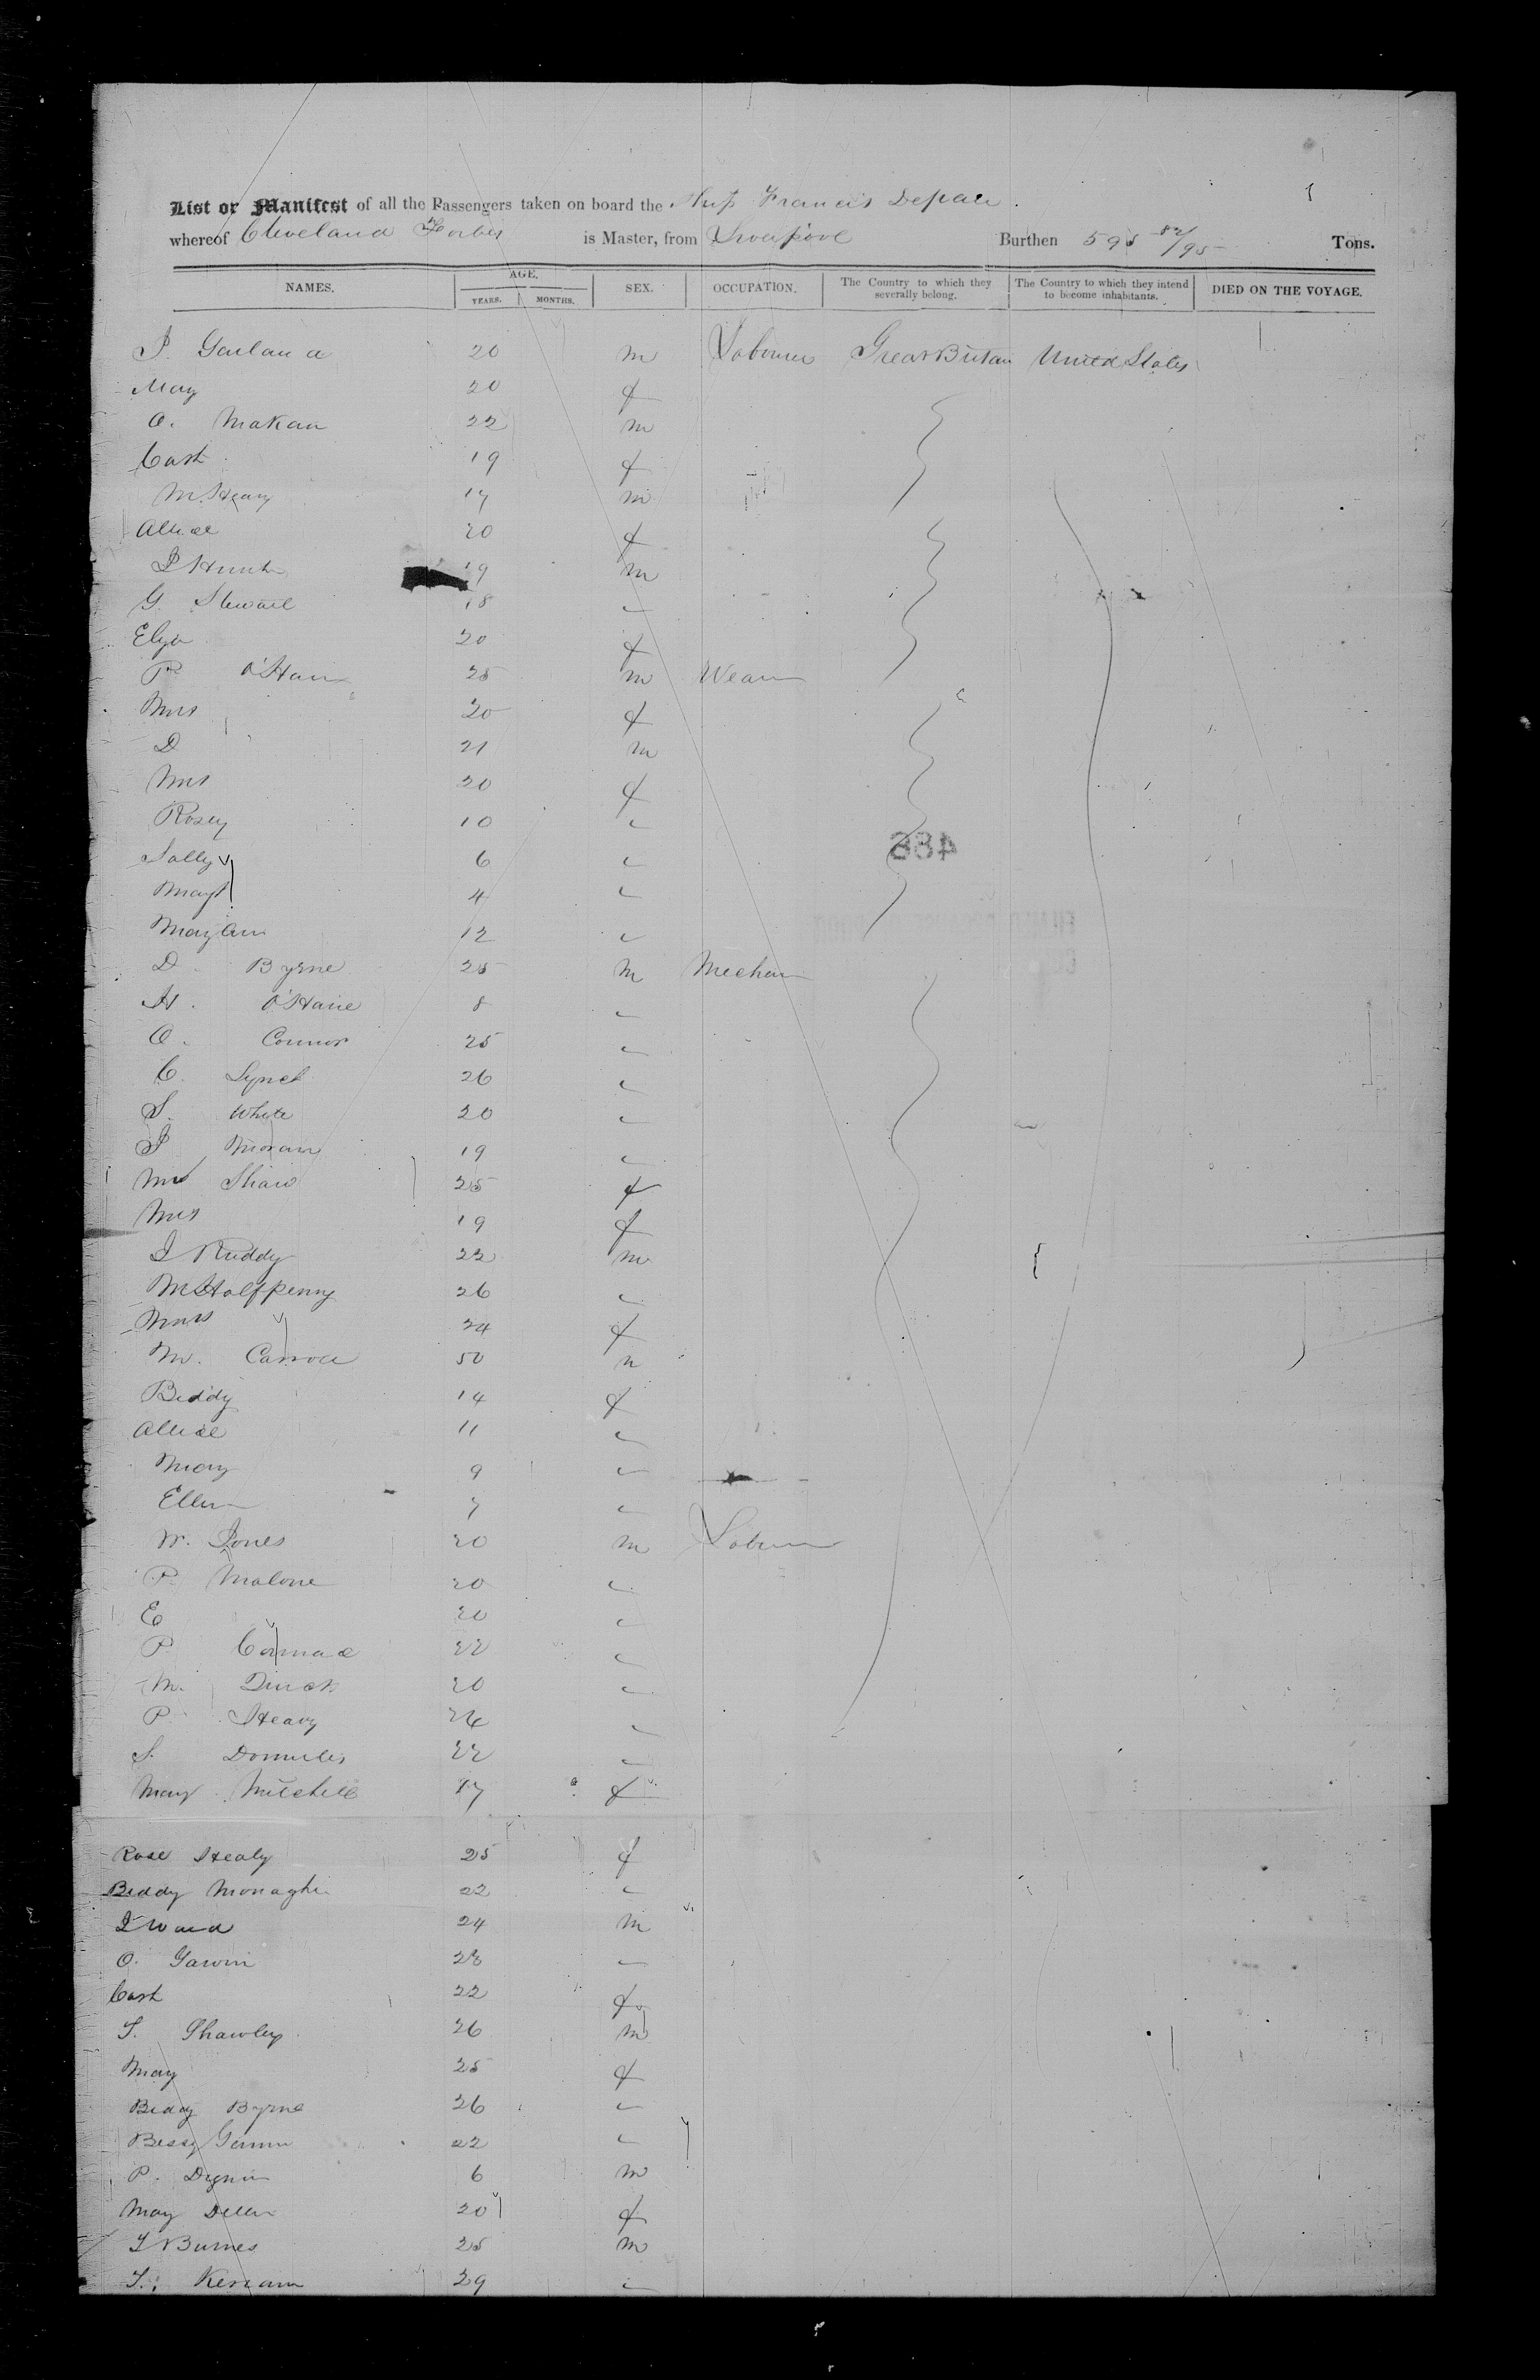 List or Manifest of all the Passengers taken on board the Ship Francis Depau
whereof Cleveland Forbes is Master, from Liverpool Burthen 595 82/95 Tons.
NAMES. AGE. YEARS. MONTHS. SEX. OCCUPATION. The Country to which they severally belong. The Country to which they intend to become inhabitants. DIED ON THE VOYAGE.
P. Garland 20 m Labourer Great Britain United States
Mary 20 f
O. Makan 22 m
Cath 19 f
M. Heany 17 m
Alice 20 f
19 m
G Stewart 18 "
Eliza 20 f
P O'Hare 25 m Weaver
Mrs 20 f
D 21 m
Mrs 20 f
Rosey 10 "
Sally 6 "
Mary 4 "
Mary Ann 12 "
D Byrne 25 m Mechan
H. O'Hare 8 "
O. Connor 25 "
C. Lynch 26 "
S. White 20 "
P Moran 19 "
Shaw 25 f
Mrs 19 f
J Ruddy 22 m
M Halfpenny 26 "
Mrs 24 f
M. Carroll 50 m
Biddy 14 f
Alice 11 "
Mary 9 "
Ellen 7 "
W. Jones 20 m Labourer
P. Malone 20 "
E 20 "
P Cormac 22 "
M. 20 "
P. Heany 26 "
S. 22 "
Mary Mitchell 17 f
484
Rose Healy 25 f
Biddy Monaghan 22 "
J Ward 24 m
O. Garvin 28 "
Cath 22 f
T. Shawley 26 m
Mary 25 f
Biddy Byrne 26 "
Bessy 22 "
P. Dignin 6 m
Mary 20 f
T Burnes 25 m
T. 29 "